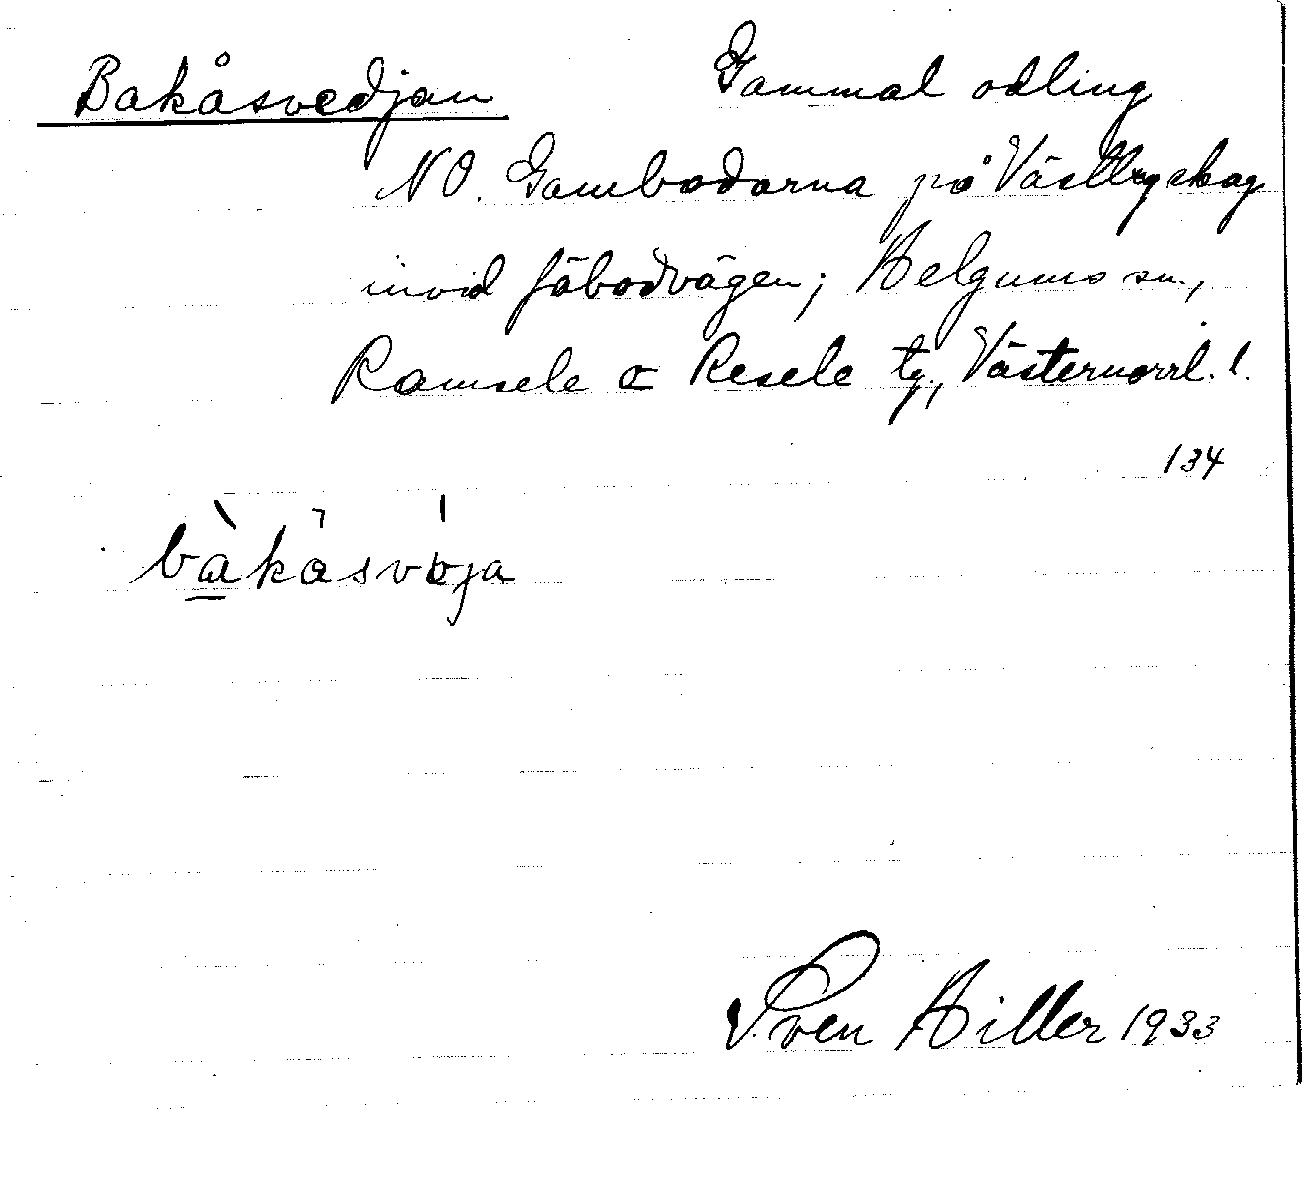 Bakåsvedjan Gammal odling
NO. Gambodarna på
invid fäbodvägen; Helgums sn.,
Ramsele o Resele tg., Västernorrl. l.
134
Sven Hiller 1933